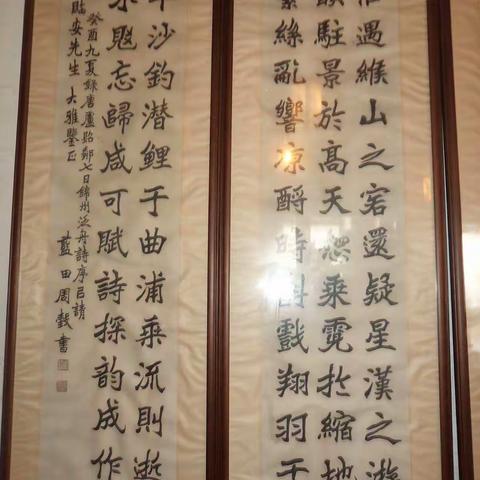 遇緱山之客還疑星漢之遊
駐景於高天乘霓於縮地
絲亂響凉酹時斟戲翔羽于
平沙釣潛鯉于曲浦乘流則逝
忘歸咸可賦詩探韵成作
癸酉九夏錄唐盧照鄰七日綿州泛舟詩序㠯請
臨安先生 大雅鑒正
藍田周書